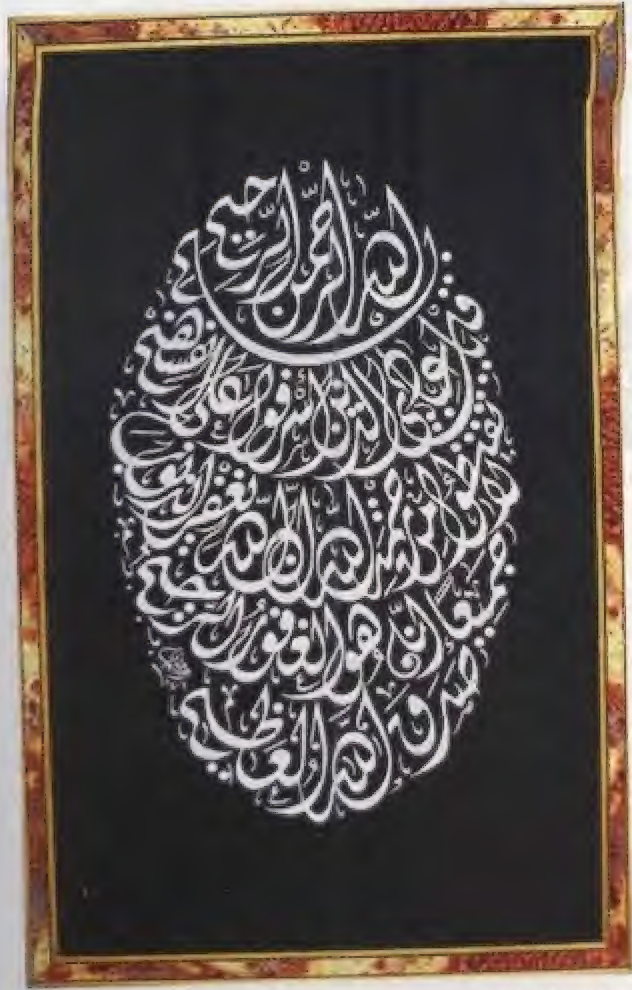 بسم الله الرحمن الرحيم
قل يا عبادي الذين أسرفوا على أنفسهم
لا تقنطوا من رحمة الله إن الله يغفر الذنوب
جميعا إنه هو الغفور الرحيم
صدق الله العظيم